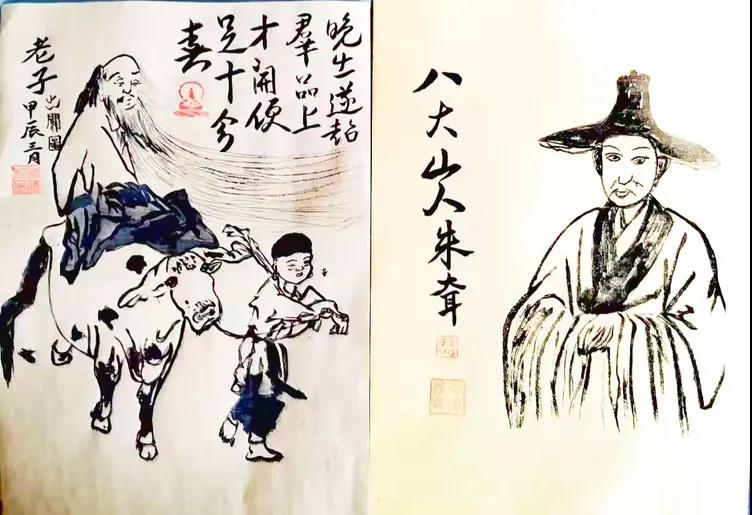 晚生遂超
羣品上
才開便
足十分
老子出關圖
甲辰三月
八大山人朱耷